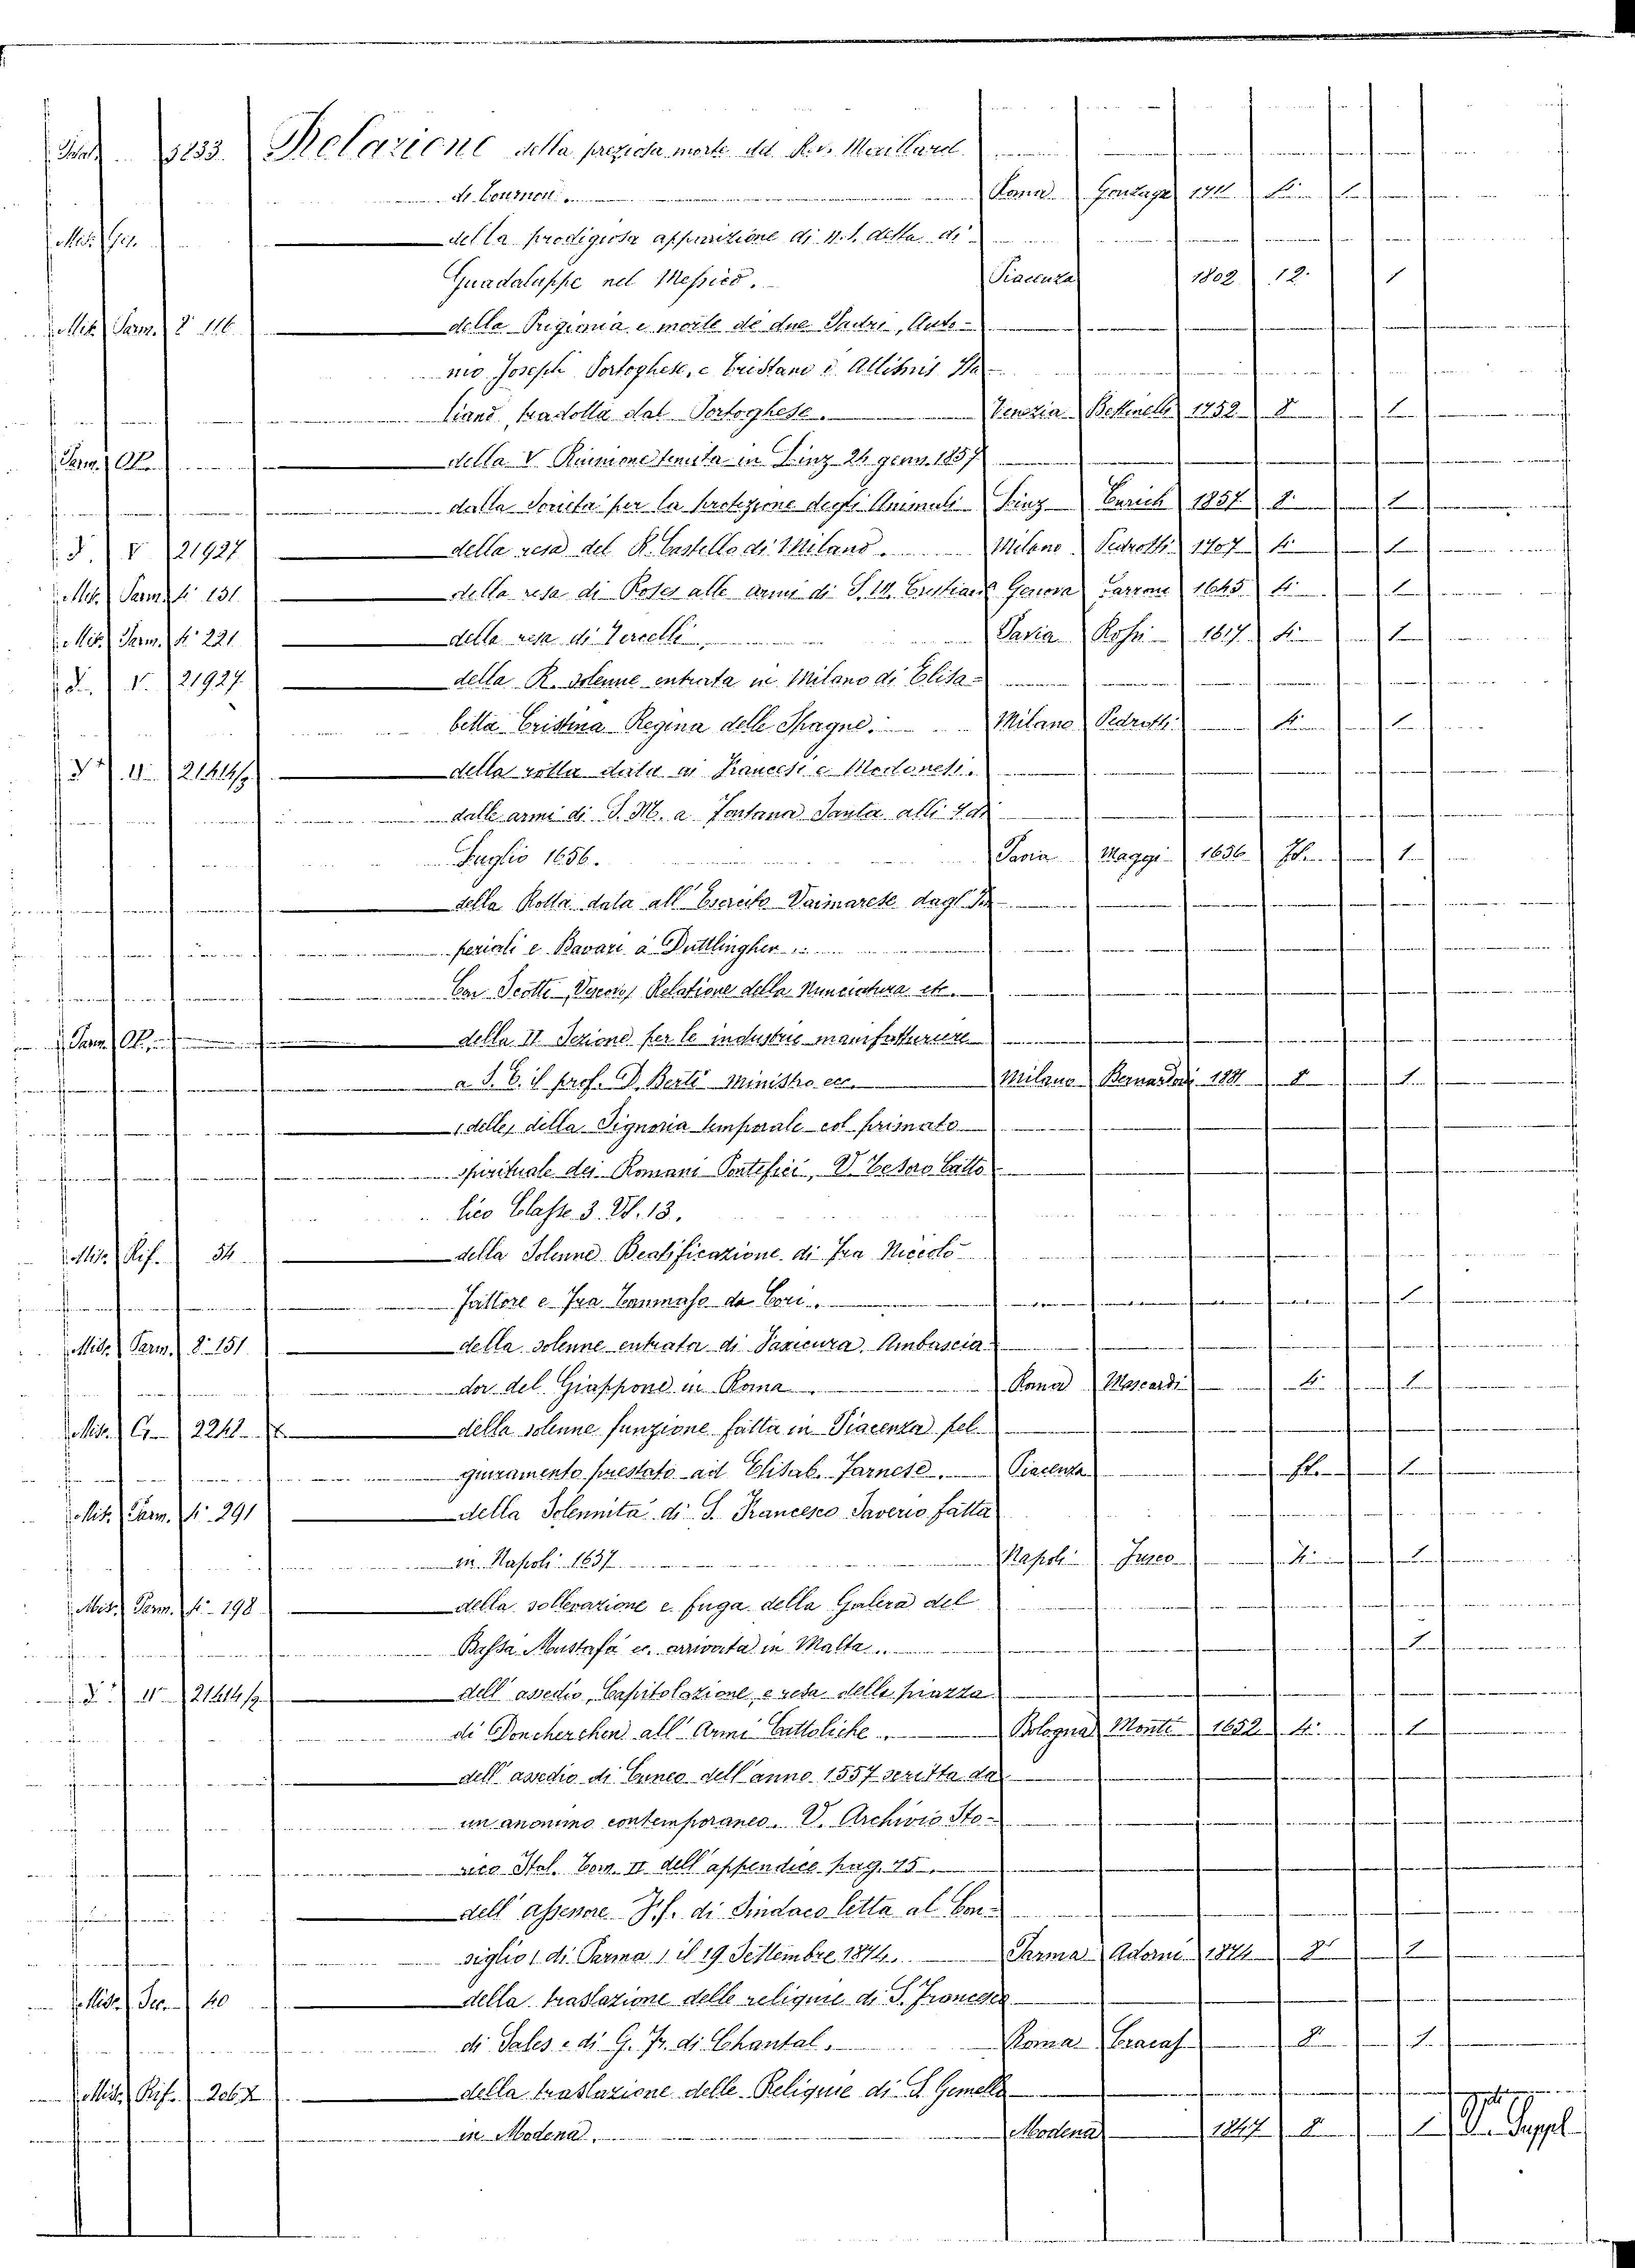 5233. Relazione della preziosa morte del R.v. Maillard
de Tournon. Roma Gonzaga 1711 4. 1
Misc. Ger. della prodigiosa apparizione di N. S. detta di
Guadaluppe nel Messico. Piacenza 1802 12. 1
Misc. Parm. 8º 116 della Prigionia e morte de due Padri, Anto-
nio Joseph Portoghese, e Tristano Ita-
liano, tradotta dal Portoghese. Venezia Bettinelli 1752 8 1
Parm. Op. della V Riunione tenuta in Linz 24 genn. 1857
dalla Società per la protezione degli Animali Linz 1857 8. 1
V 21927 della resa del R. Castello di Milano. Milano Pedrotti 1707 4. 1
Misc. Parm. 4º 131 della resa di Roses alle armi di S. M. Cristian. Genova Farroni 1645 4. 1
Misc. Parm. 4º 221 della resa di Vercelli Pavia Rossi 1617 4. 1
V. 21927. della R. solenne entrata in Milano di Elisa-
betta Cristina Regina delle Spagne. Milano Pedrotti 4. 1
II. 21414/2 della rotta data ai Francesi e Modonesi
dalle armi di S. M. a Fontana Santa alli 7 di
Luglio 1656. Pavia Maggi 1656 Fol. 1
della Rotta data all'Esercito Vaimarese dagl'Im-
periali e Bavari a Duttlinghen
Car. Scotti (Vescovo) Relatione della Nunciatura etc.
Parm. Op. della II Sezione per le industrie manifatturiere
a S. E. il prof. D. Berti Ministro ecc. Milano Bernardoni 1881 8 1
(delle) della Signoria temporale col primato
spirituale dei Romani Pontefici, V. Tesoro Catto
lico Classe 3. Vl. 13.
Misc. Rif. 54 della Solenne Beatificazione di Fra Nicolò
Fattore e Fra Tommaso da Cori. 1
Misc. Parm. 8º 151 della solenne entrata di Ambascia-
dor del Giappone in Roma Roma Mascardi 4. 1
Misc. G. 2248 della solenne funzione fatta in Piacenza pel
giuramento prestato ad Elisab. Farnese. Piacenza 1
Misc. Parm. 4º 291 della Solennità di S. Francesco Saverio fatta
in Napoli 1657 Napoli Fusco 4. 1
Misc. Parm. 4º 198 della sollevazione e fuga della Galera del
Bassà Mustafà ec. arrivata in Malta. 1
II 21414/2 dell'assedio, Capitolazione, e resa della piazza
di Doncherchen all'Armi Cattoliche. Bologna Monti 1652 4. 1
dell'assedio di Cuneo dell'anno 1557 scritta da
un anonimo contemporaneo. V. Archivio Sto-
rico Ital. Tom. II dell'appendice pag. 75.
dell'assessore Ff. di Sindaco letta al Con-
siglio (di Parma) il 19 Settembre 1874. Parma Adorni 1874 8º 1
Misc. Ger. 40 della traslazione delle reliquie di S. Francesco
di Sales e di G. Fr. di Chantal. Roma Cracas 8º 1
Misc. Rif. 206 della traslazione delle Reliquie di S. Gemello
in Modena. Modena 1847 8 1 V. Suppl.